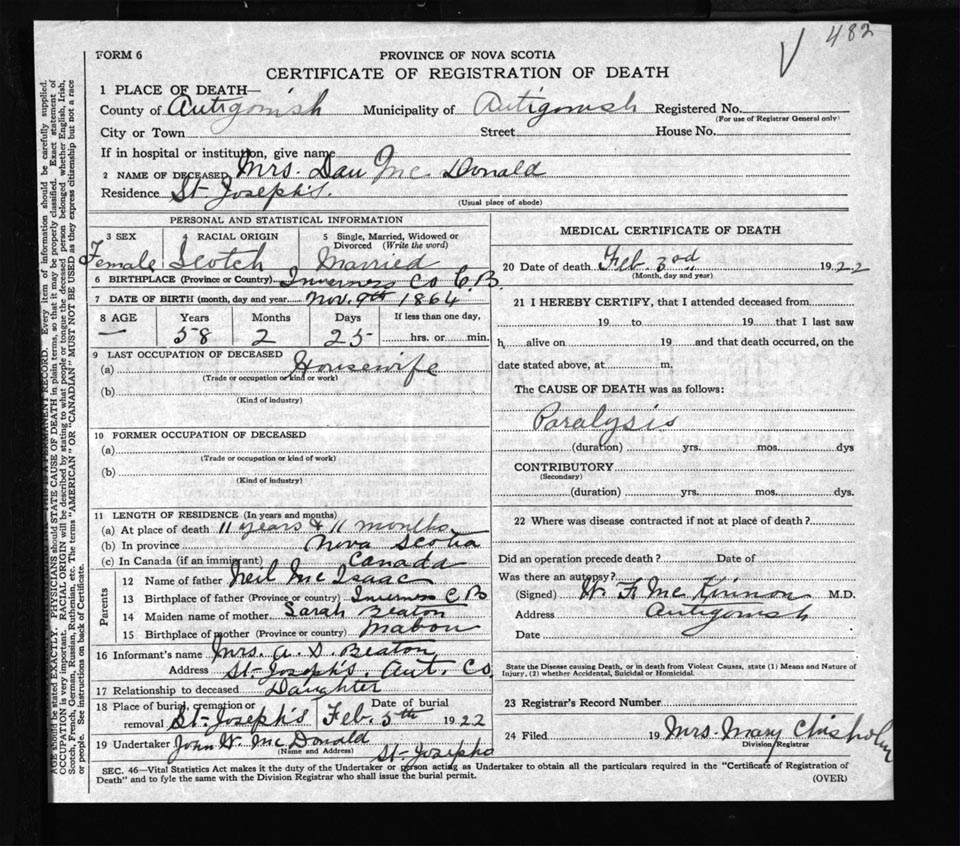 482
FORM 6
PROVINCE OF NOVA SCOTIA
CERTIFICATE OF REGISTRATION OF DEATH
1 PLACE OF DEATH—
County of Antigonish Municipality of Antigonish Registered No.
(For use of Registrar General only)
City or Town Street House No.
If in hospital or institution, give name
2 NAME OF DECEASED Mrs. Dan Mc Donald
Residence St. Joseph's.
(Usual place of abode)
PERSONAL AND STATISTICAL INFORMATION
3 SEX 4 RACIAL ORIGIN 5 Single, Married, Widowed or Divorced (Write the word)
Female Scotch Married
6 BIRTHPLACE (Province or Country) Inverness Co C.B.
7 DATE OF BIRTH (month, day and year) Nov. 9th 1864
8 AGE Years Months Days If less than one day,
— 58 2 25 hrs. or min.
9 LAST OCCUPATION OF DECEASED
(a) Housewife
(Trade or occupation or kind or work)
(b)
(Kind of industry)
10 FORMER OCCUPATION OF DECEASED
(a)
(Trade or occupation or kind of work)
(b)
(Kind of industry)
11 LENGTH OF RESIDENCE (In years and months)
(a) At place of death 11 years & 11 months
(b) In province Nova Scotia
(c) In Canada (if an immigrant) Canada
Parents
12 Name of father Neil Mc Isaac
13 Birthplace of father (Province or country) Inverness C B
14 Maiden name of mother Sarah Beaton
15 Birthplace of mother (Province or country) Mabou
16 Informant's name Mrs. A. D. Beaton
Address St. Joseph's, Ant. Co.
17 Relationship to deceased Daughter
18 Place of burial, cremation or removal St. Joseph's Date of burial Feb. 5th 1922
19 Undertaker John W. Mc Donald
(Name and Address) St. Josephs
MEDICAL CERTIFICATE OF DEATH
20 Date of death Feb. 3rd 1922
(Month, day and year)
21 I HEREBY CERTIFY, that I attended deceased from
19 to 19 that I last saw
h alive on 19 and that death occurred, on the
date stated above, at m.
The CAUSE OF DEATH was as follows:
Paralysis
(duration) yrs. mos. dys
CONTRIBUTORY
(Secondary)
(duration) yrs. mos. dys.
22 Where was disease contracted if not at place of death?
Did an operation precede death? Date of
Was there an autopsy?
(Signed) W. F. Mc Kinnon M.D.
Address Antigonish
Date
State the Disease causing Death, or in death from Violent Causes, state (1) Means and Nature of
Injury, (2) whether Accidental, Suicidal or Homicidal.
23 Registrar's Record Number
24 Filed 19 Mrs. Mary Chisholm
Division Registrar
SEC. 46—Vital Statistics Act makes it the duty of the Undertaker or person acting as Undertaker to obtain all the particulars required in the "Certificate of Registration of
Death" and to fyle the same with the Division Registrar who shall issue the burial permit.
(OVER)
THIS IS A PERMANENT RECORD. Every item of information should be carefully supplied.
AGE should be stated EXACTLY. PHYSICIANS should STATE CAUSE OF DEATH in plain terms, so that it may be properly classified. Exact statement of
OCCUPATION is very important. RACIAL ORIGIN will be described by stating to what people or tongue the deceased person belonged whether English, Irish,
Scotch, French, German, Russian, Ruthenian, etc. The terms "AMERICAN" or "CANADIAN" MUST NOT BE USED as they express citizenship but not a race
or people. See instructions on back of Certificate.